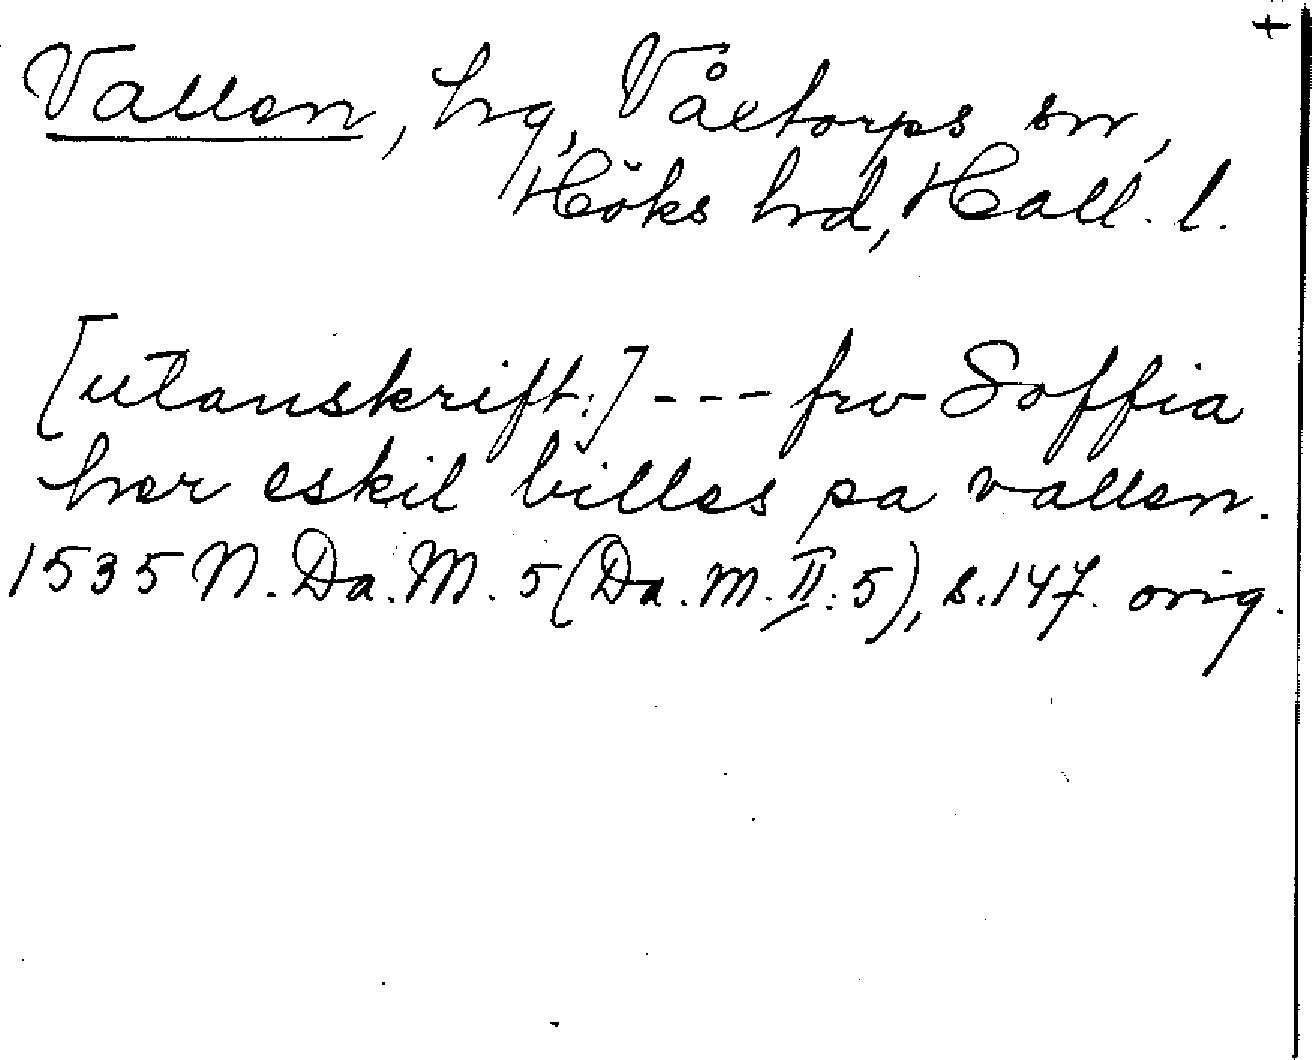 +
Vallen, hrg, Våxtorps sn,
Höks hrd, Hall. l.
[utanskrift:] --- frv Soffia
her eskil billes pa vallen.
1535 N. Da. M. 5 (Da. M. II: 5), s. 147. orig.